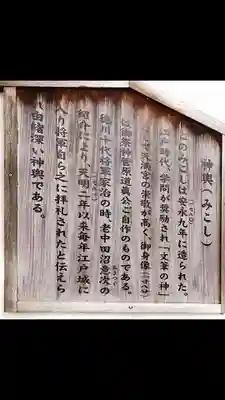 神輿(みこし)
このみこしは安永九年に造られた。
江戸時代、学問が奨励され「文筆の神」
として天満宮の崇敬が高く、御身像
は御祭神菅原道真公ご自作のものである。
徳川十代将軍家治の時、老中田沼意次の
紹介により、天明二年以来毎年江戸城に
入り将軍自ら之に拝礼されたと伝えら
れ由緒深い神輿である。